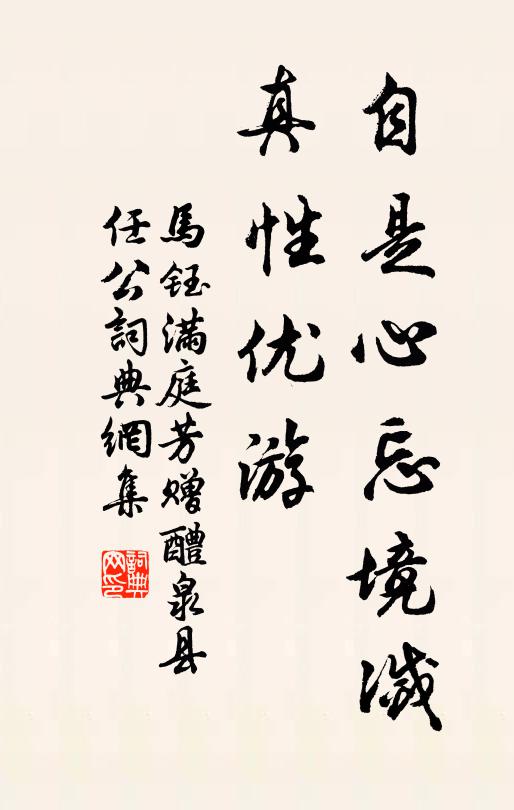 自是心忘境灭
真性优游
馬鈺滿庭芳赠醴泉县
任公詞典網集
詞典
网印